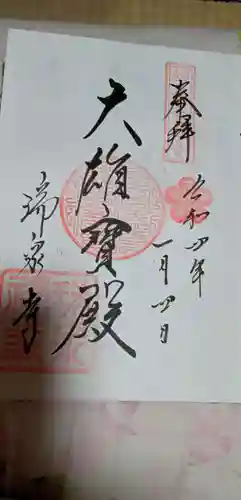 奉拝
令和四年
一月四日
大雄寳殿
瑞泉寺